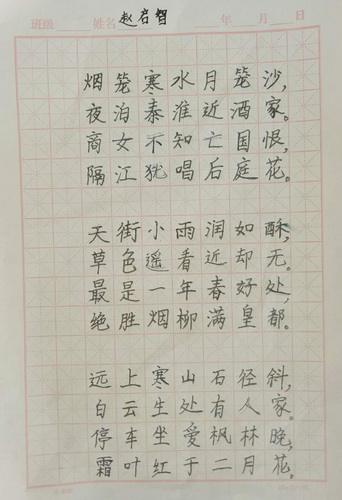 班级 姓名 赵启智 年 月 日
烟笼寒水月笼沙,
夜泊秦淮近酒家。
商女不知亡国恨,
隔江犹唱后庭花。
天街小雨润如酥,
草色遥看近却无。
最是一年春好处,
绝胜烟柳满皇都。
远上寒山石径斜,
白云生处有人家。
停车坐爱枫林晚,
霜叶红于二月花。